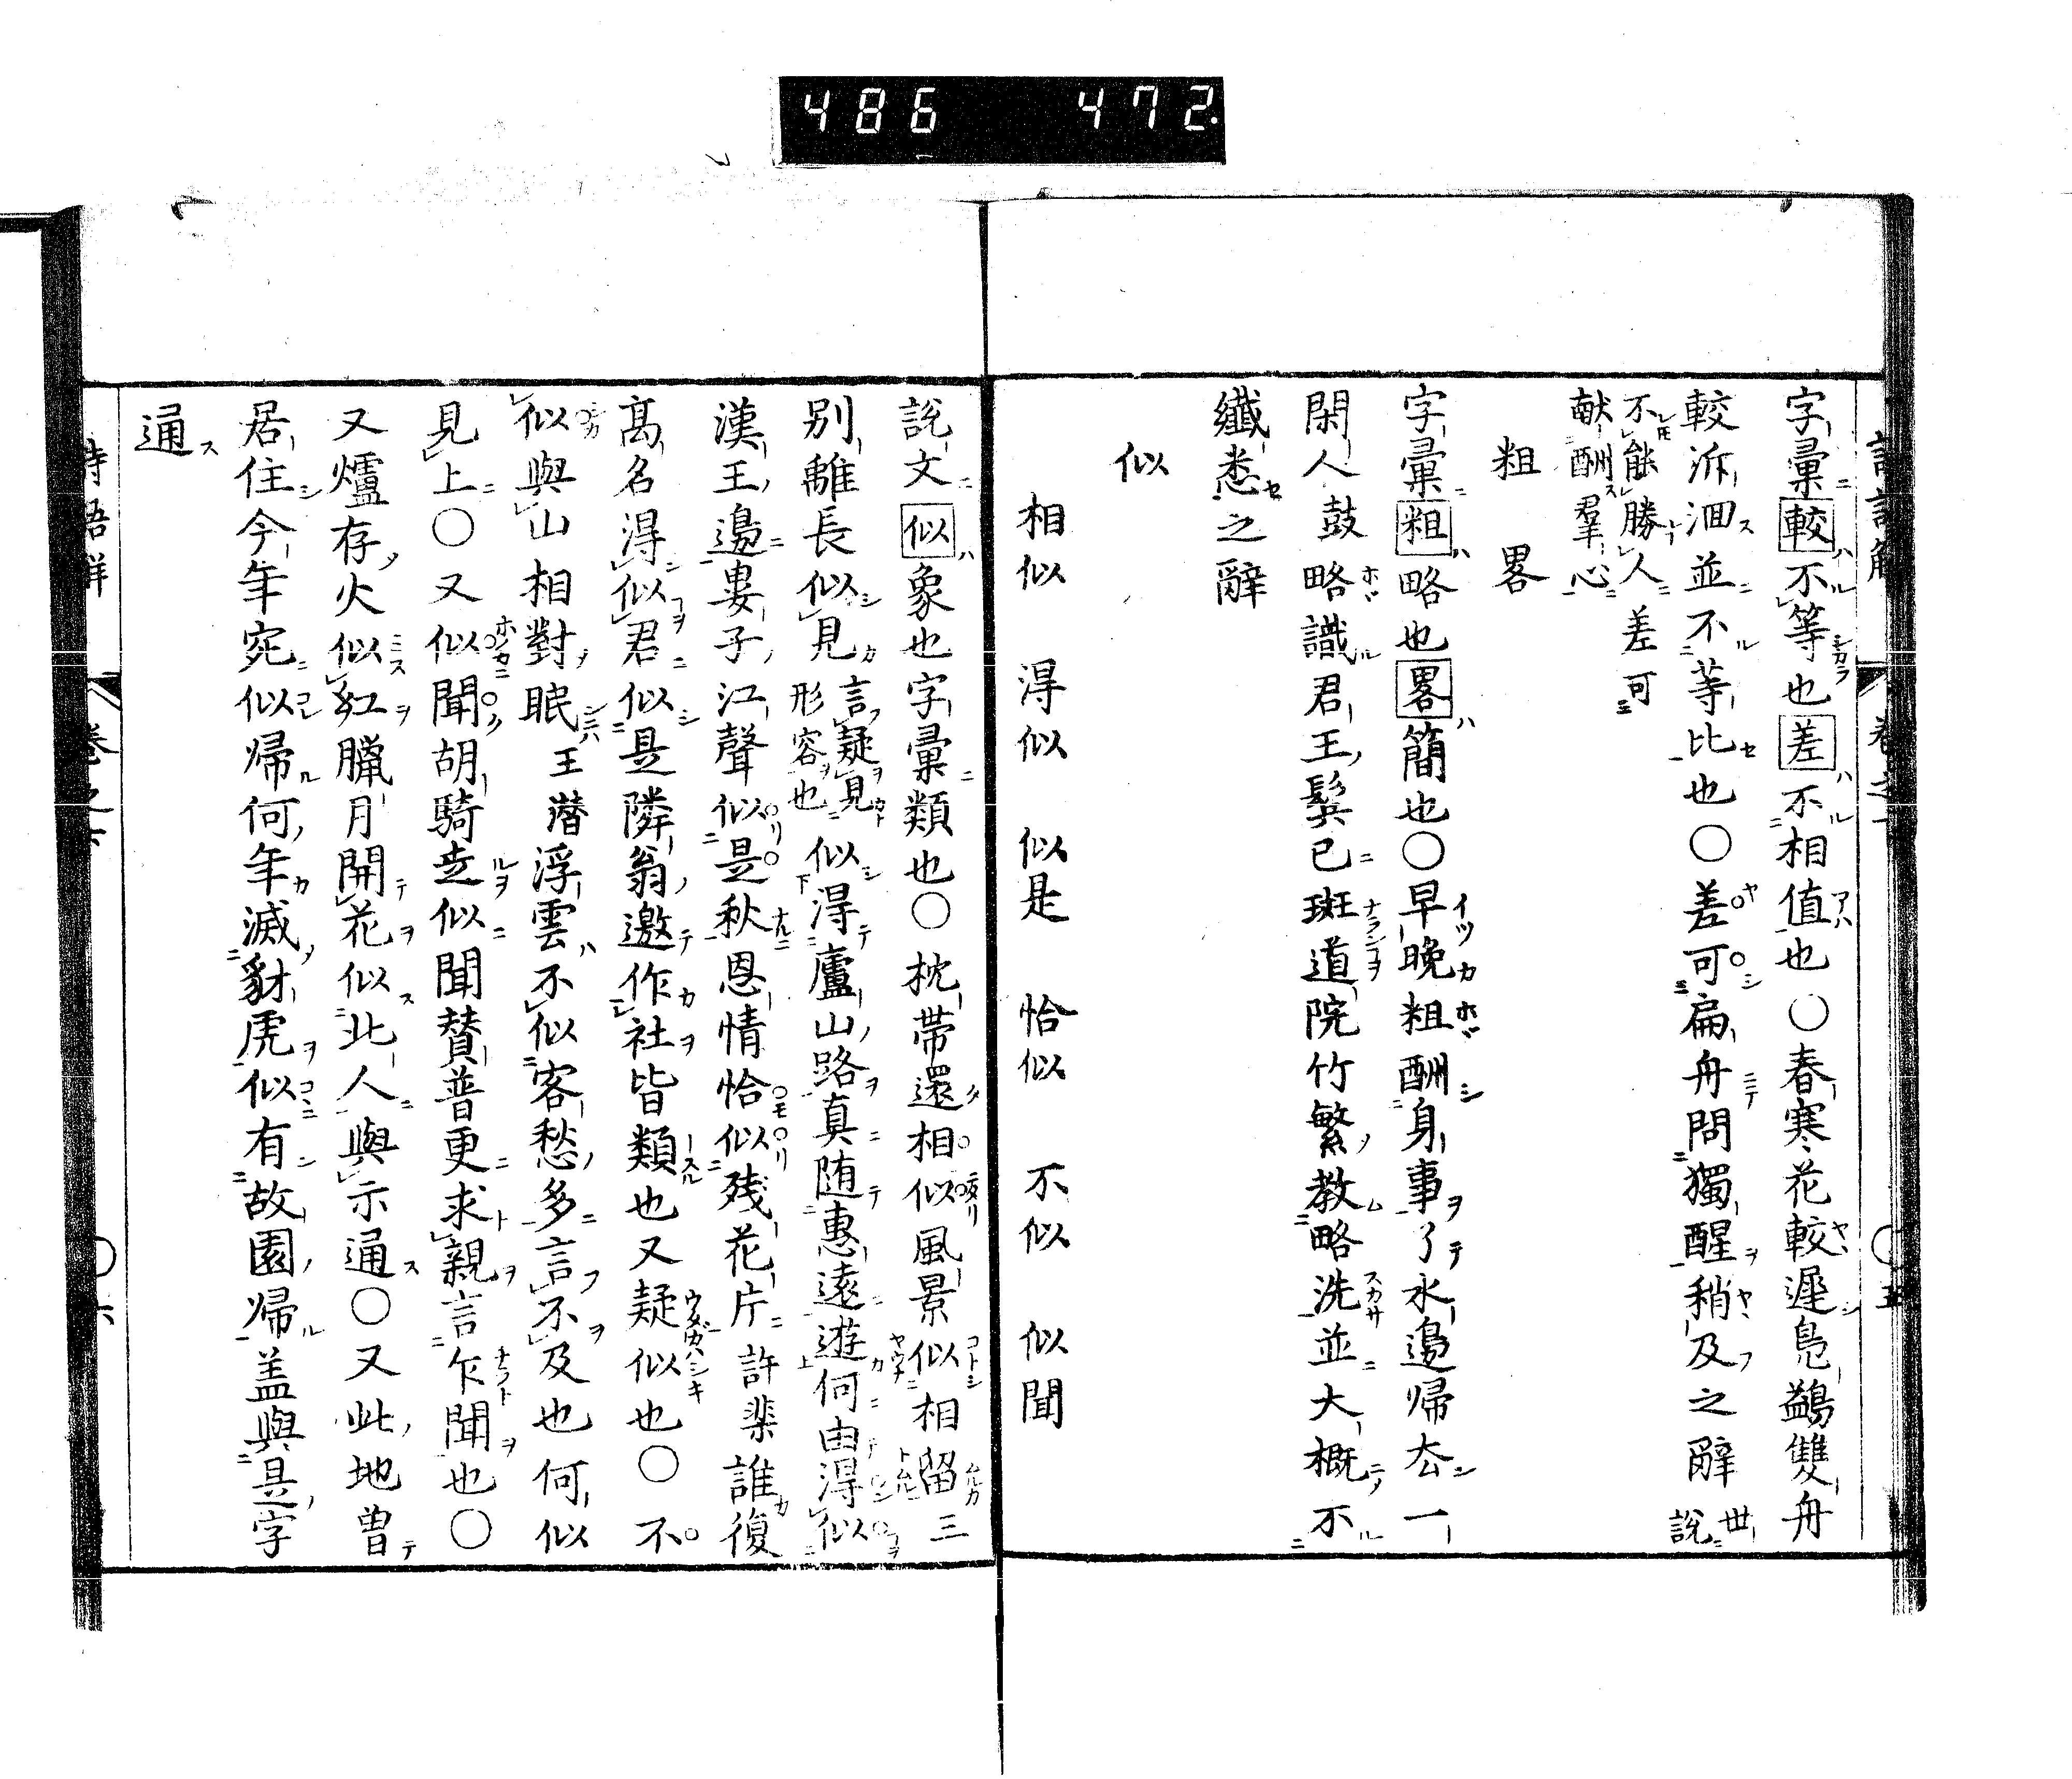 486 472.
字彙較不等也差不相値也〇春寒花較遲鳧鷁雙舟
較泝洄並不等比也〇差可扁舟問獨醒稍及之辭世說
不能勝人差可
献酬羣心
粗 畧
字彙粗略也畧簡也〇早晩粗酬身事了水邊帰去一
閑人鼓略識君王鬂已斑道院竹繁教略洗並大概不
纖悉之辭
似
相似 得似 似是 恰似 不似 似聞
說文似象也字彙類也〇枕帶還相似風景似相留三
別離長似見言疑見形容也似得廬山路真随惠遠遊何由得似
漢王邊婁子江聲似是秋恩情恰似残花片許渠誰復
高名得似君似是隣翁邀作社皆類也又疑似也〇不
似與山相對眠王潜浮雲不似客愁多言不及也何似
見上〇又似聞胡騎走似聞賛普更求親言乍聞也〇
又爐存火似紅臘月開花似北人與示通〇又此地曽
居住今年宛似帰何年滅豺虎似有故園帰盖與是字
通